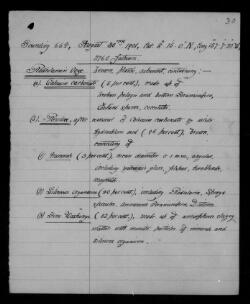 30
Sounding 662, August 22nd 1901, Lat 2° 16'.0 N, Long 157° 3' 30" W,
2760 fathoms.
Radiolarian Ooze brown, plastic, coherent, containing:—
(a). Calcium carbonate (5 per cent.), made up of
broken pelagic and bottom Foraminifera,
(b). Residue, after removal of calcium carbonate by dilute
hydrochloric acid (95 per cent.), brown,
consisting of
(1) Minerals (1 per cent.), mean diameter 0.1 mm, angular,
including volcanic glass, felspar, hornblende,
magnetite.
(2) Siliceous organisms (40 per cent.), including Radiolaria, Sponge
spicules, arenaceous Foraminifera, Diatoms.
(3) Fine Washings (52 per cent.), made up of amorphous clayey
matter with minute particles of minerals and
siliceous organisms.